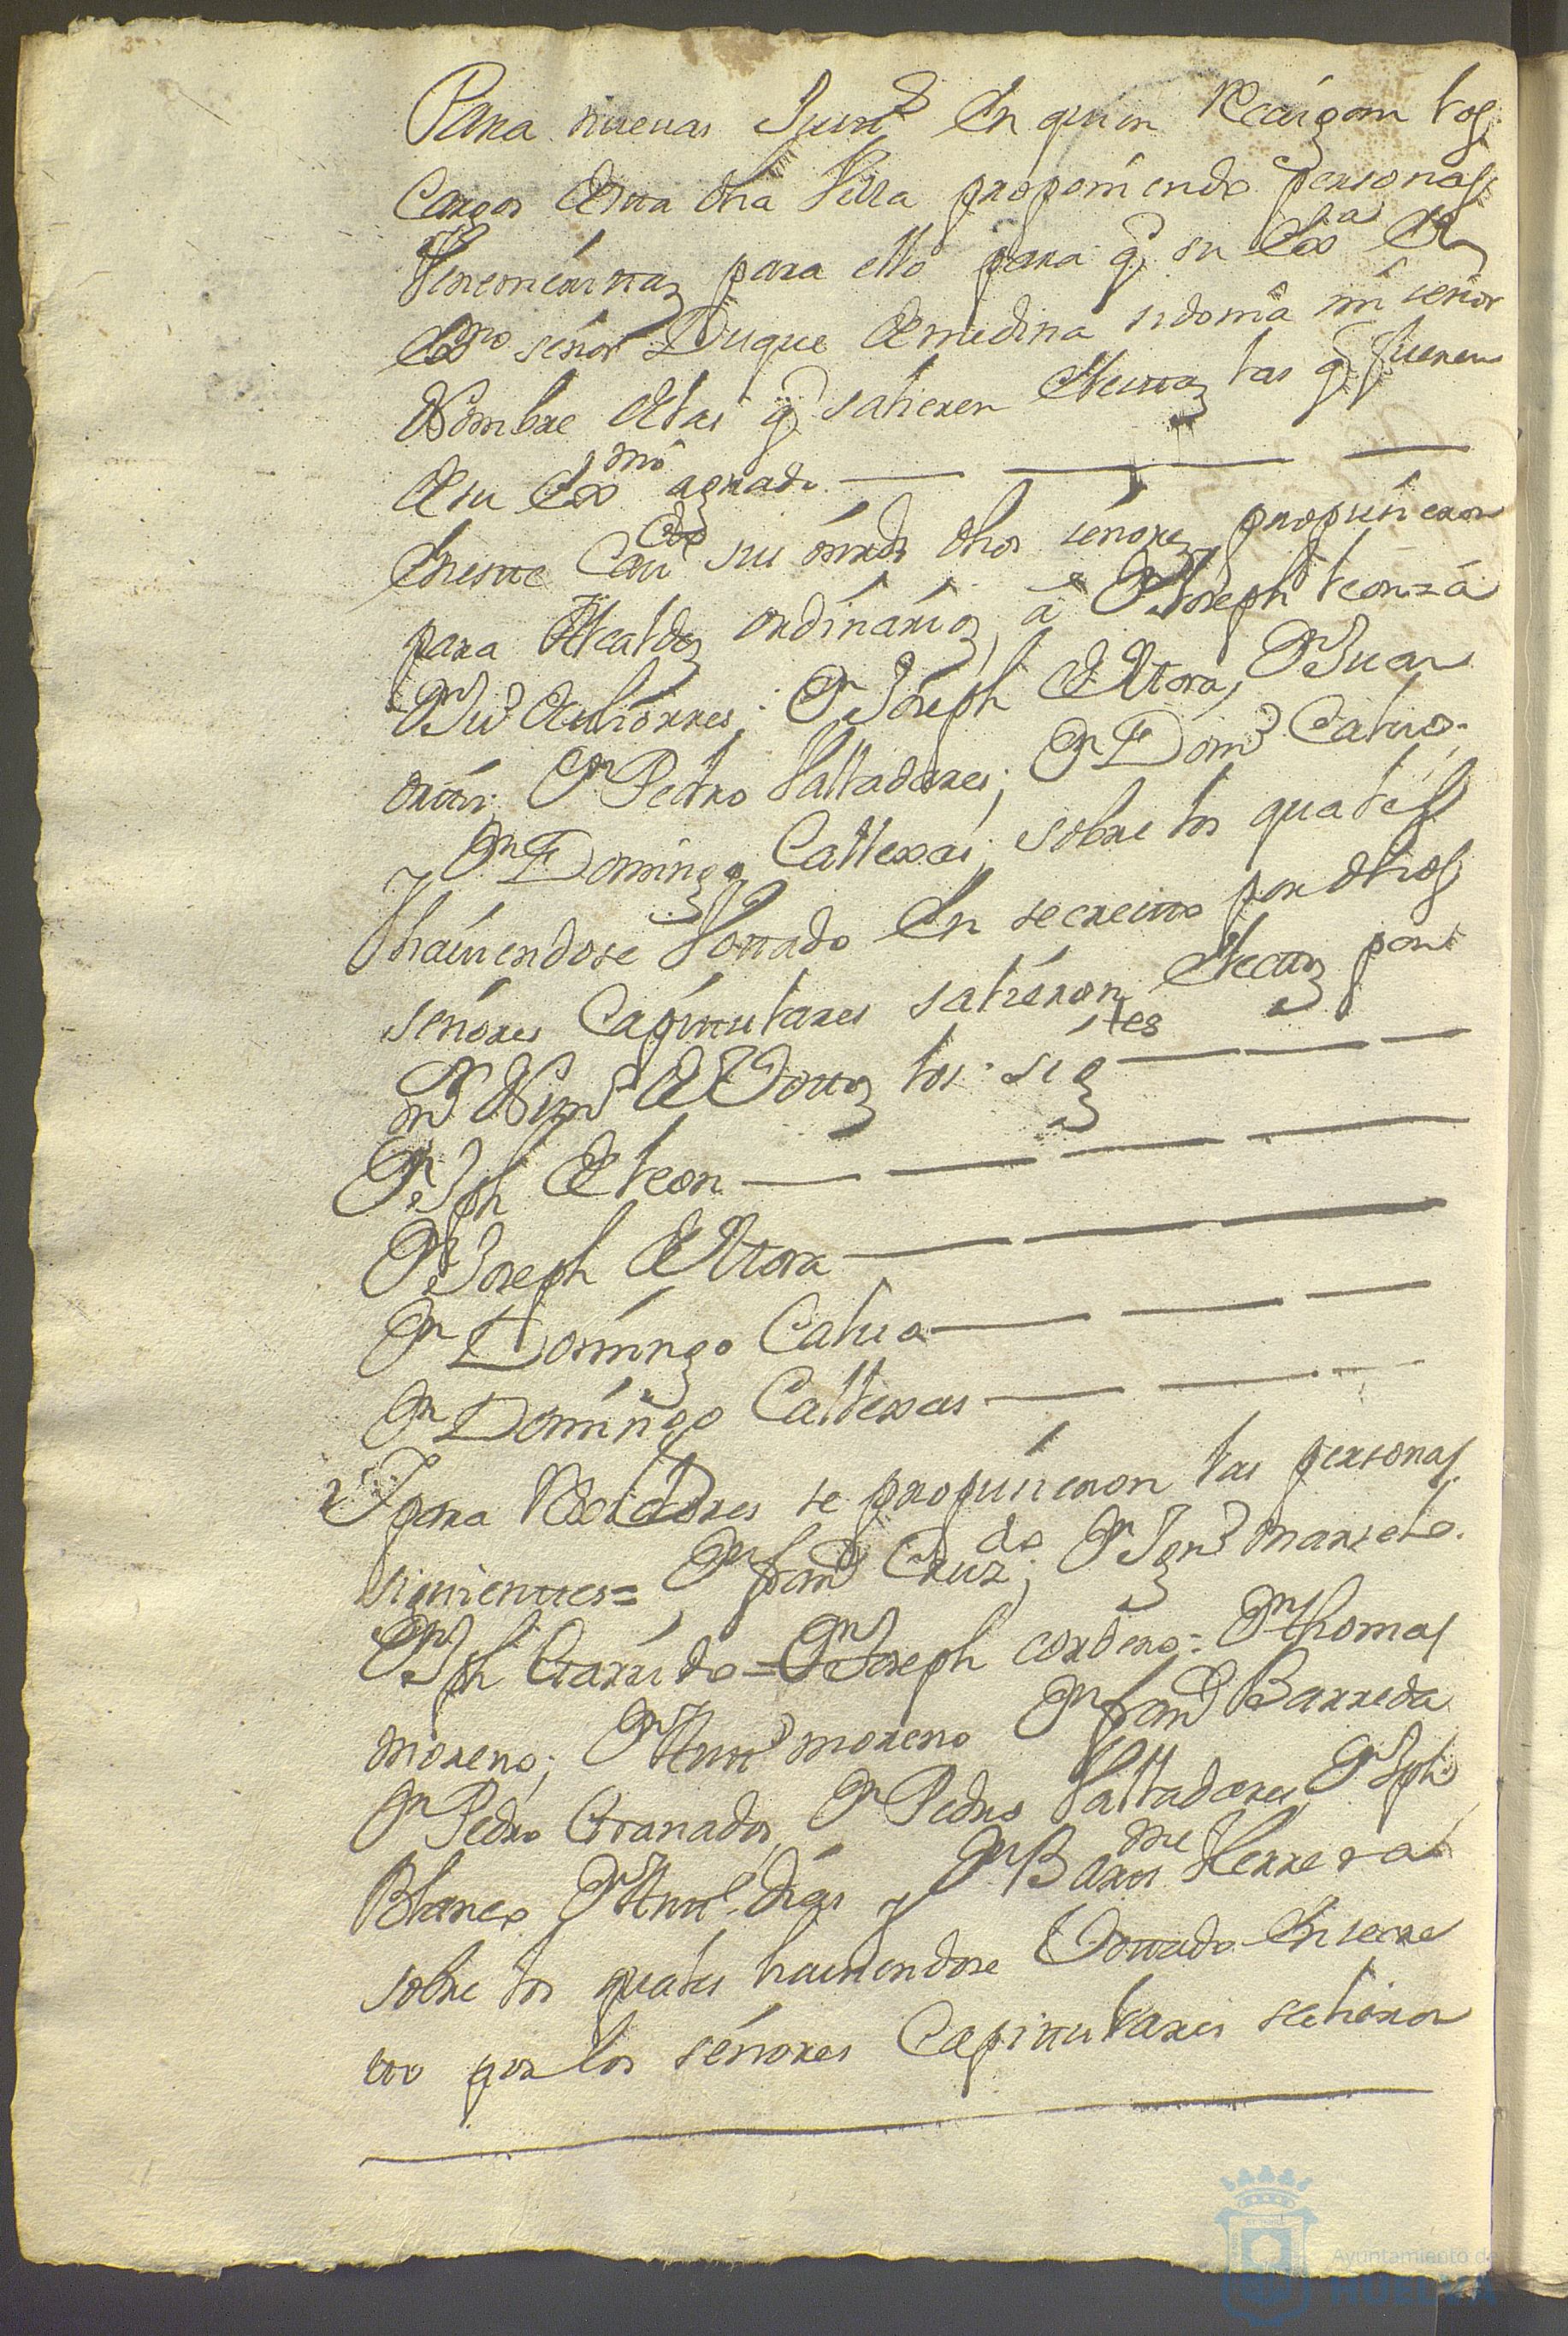 Para nueuas Just.s En quien Recaigan los
Cargos desta dha Villa proponiendo personas
Venemeritas para ello para q.e su Ex.a El
Ex.mo señor Duque de medina sidonia mi señor
Nombre de las q.e salieren Electas las q.e fueren
de su Ex.mo agrado
En este Cau.do sus mrds dhos señores propusieron
para Alcaldes ordinarios, a D.n Joseph leon = a
D.n Ju.o Gutiorres; D.n Joseph de Mora, D.n Juan
ortis; D.n Pedro Valladares; D.n Dom.o Caluo;
D.n Domingo Callexas; sobre los quales
Y hauiendose Vottado En secretto por dhos
señores Capitulares salieron Electos por
m.r Num.o de Vottos los sig.tes
D.n Jph de leon
D.n Joseph de Mora
D.n Domingo Calua
D.n Domingo Callexas
Y para Rexidores se propusieron las personas
siguienttes = D.n fran.co Cruz.do; D.n Ign.o marselo.
D.n Jph Garrido = D.n Joseph cordero = D.n thomas
moreno; D.n Antt.o moreno D.n fran.co Barreda
D.n Pedro Granados, D.n Pedro Valladares, D.n Jph
Blanco D.n Antt.o dias y D.n Bar.me Herrera
sobre los quales hauiendose Vottado En secre
tto por los señores Capittulares salieron
Ayuntamiento de
HUELVA